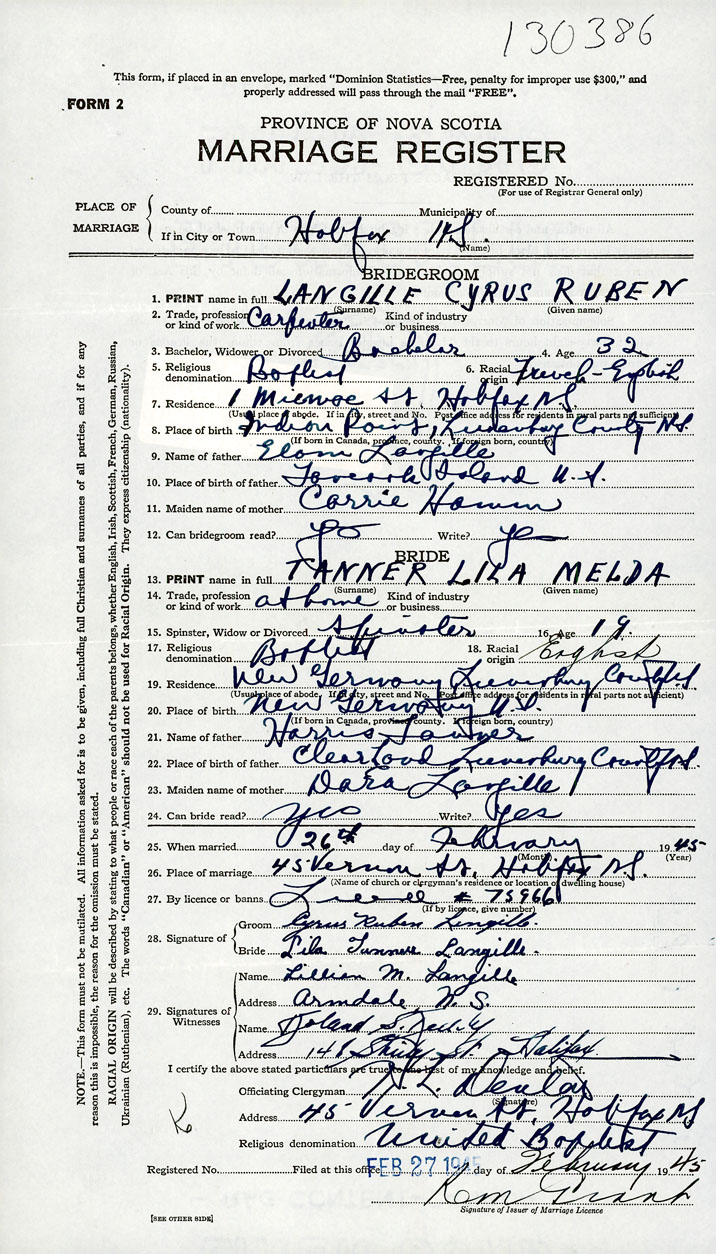 130386
This form, if placed in an envelope, marked "Dominion Statistics—Free, penalty for improper use $300," and
properly addressed will pass through the mail "FREE".
FORM 2
PROVINCE OF NOVA SCOTIA
MARRIAGE REGISTER
REGISTERED No.
(For use of Registrar General only)
PLACE OF MARRIAGE
County of Municipality of
If in City or Town Halifax N.S.
(Name)
BRIDEGROOM
1. PRINT name in full LANGILLE CYRUS RUBEN
(Surname) (Given name)
2. Trade, profession or kind of work Carpenter Kind of industry or business
3. Bachelor, Widower or Divorced Bachelor 4. Age 32
5. Religious denomination Baptist 6. Racial origin French-English
7. Residence 1 St. Halifax N.S.
(Usual place of abode. If in city, street and No. Post office address for residents in rural parts not sufficient)
8. Place of birth Indian Point, Lunenburg County N.S.
(If born in Canada, province, county. If foreign born, country)
9. Name of father Langille
10. Place of birth of father Tancook Island N.S.
11. Maiden name of mother Carrie Hamm
12. Can bridegroom read? yes Write? yes
BRIDE
13. PRINT name in full TANNER LILA MELDA
(Surname) (Given name)
14. Trade, profession or kind of work at home Kind of industry or business
15. Spinster, Widow or Divorced Spinster 16. Age 19.
17. Religious denomination Baptist 18. Racial origin English
19. Residence New Germany Lunenburg County N.S.
(Usual place of abode. If in city, street and No. Post office address for residents in rural parts not sufficient)
20. Place of birth New Germany N.S.
(If born in Canada, province, county. If foreign born, country)
21. Name of father Harris Tanner
22. Place of birth of father Clearland Lunenburg County N.S.
23. Maiden name of mother Dara Langille
24. Can bride read? yes Write? Yes
25. When married 26th day of February 1945
(Month) (Year)
26. Place of marriage 45 Vernon St, Halifax N.S.
(Name of church or clergyman's residence or location of dwelling house)
27. By licence or banns # 75966
(If by licence, give number)
28. Signature of
Groom Cyrus Ruben Langille.
Bride Lila Tanner Langille.
29. Signatures of Witnesses
Name Lillian M. Langille
Address Armdale N.S.
Name S.
Address St. Halifax.
I certify the above stated particulars are true to the best of my knowledge and belief.
Officiating Clergyman
(Signature)
Address 45 Vernon St, Halifax N.S.
Religious denomination United Baptist
Registered No. Filed at this office FEB 27 1945 day of February 1945
Signature of Issuer of Marriage Licence
[SEE OTHER SIDE]
NOTE.—This form must not be mutilated. All information asked for is to be given, including full Christian and surnames of all parties, and if for any
reason this is impossible, the reason for the omission must be stated.
RACIAL ORIGIN will be described by stating to what people or race each of the parents belongs, whether English, Irish, Scottish, French, German, Russian,
Ukrainian (Ruthenian), etc. The words "Canadian" or "American" should not be used for Racial Origin. They express citizenship (nationality).